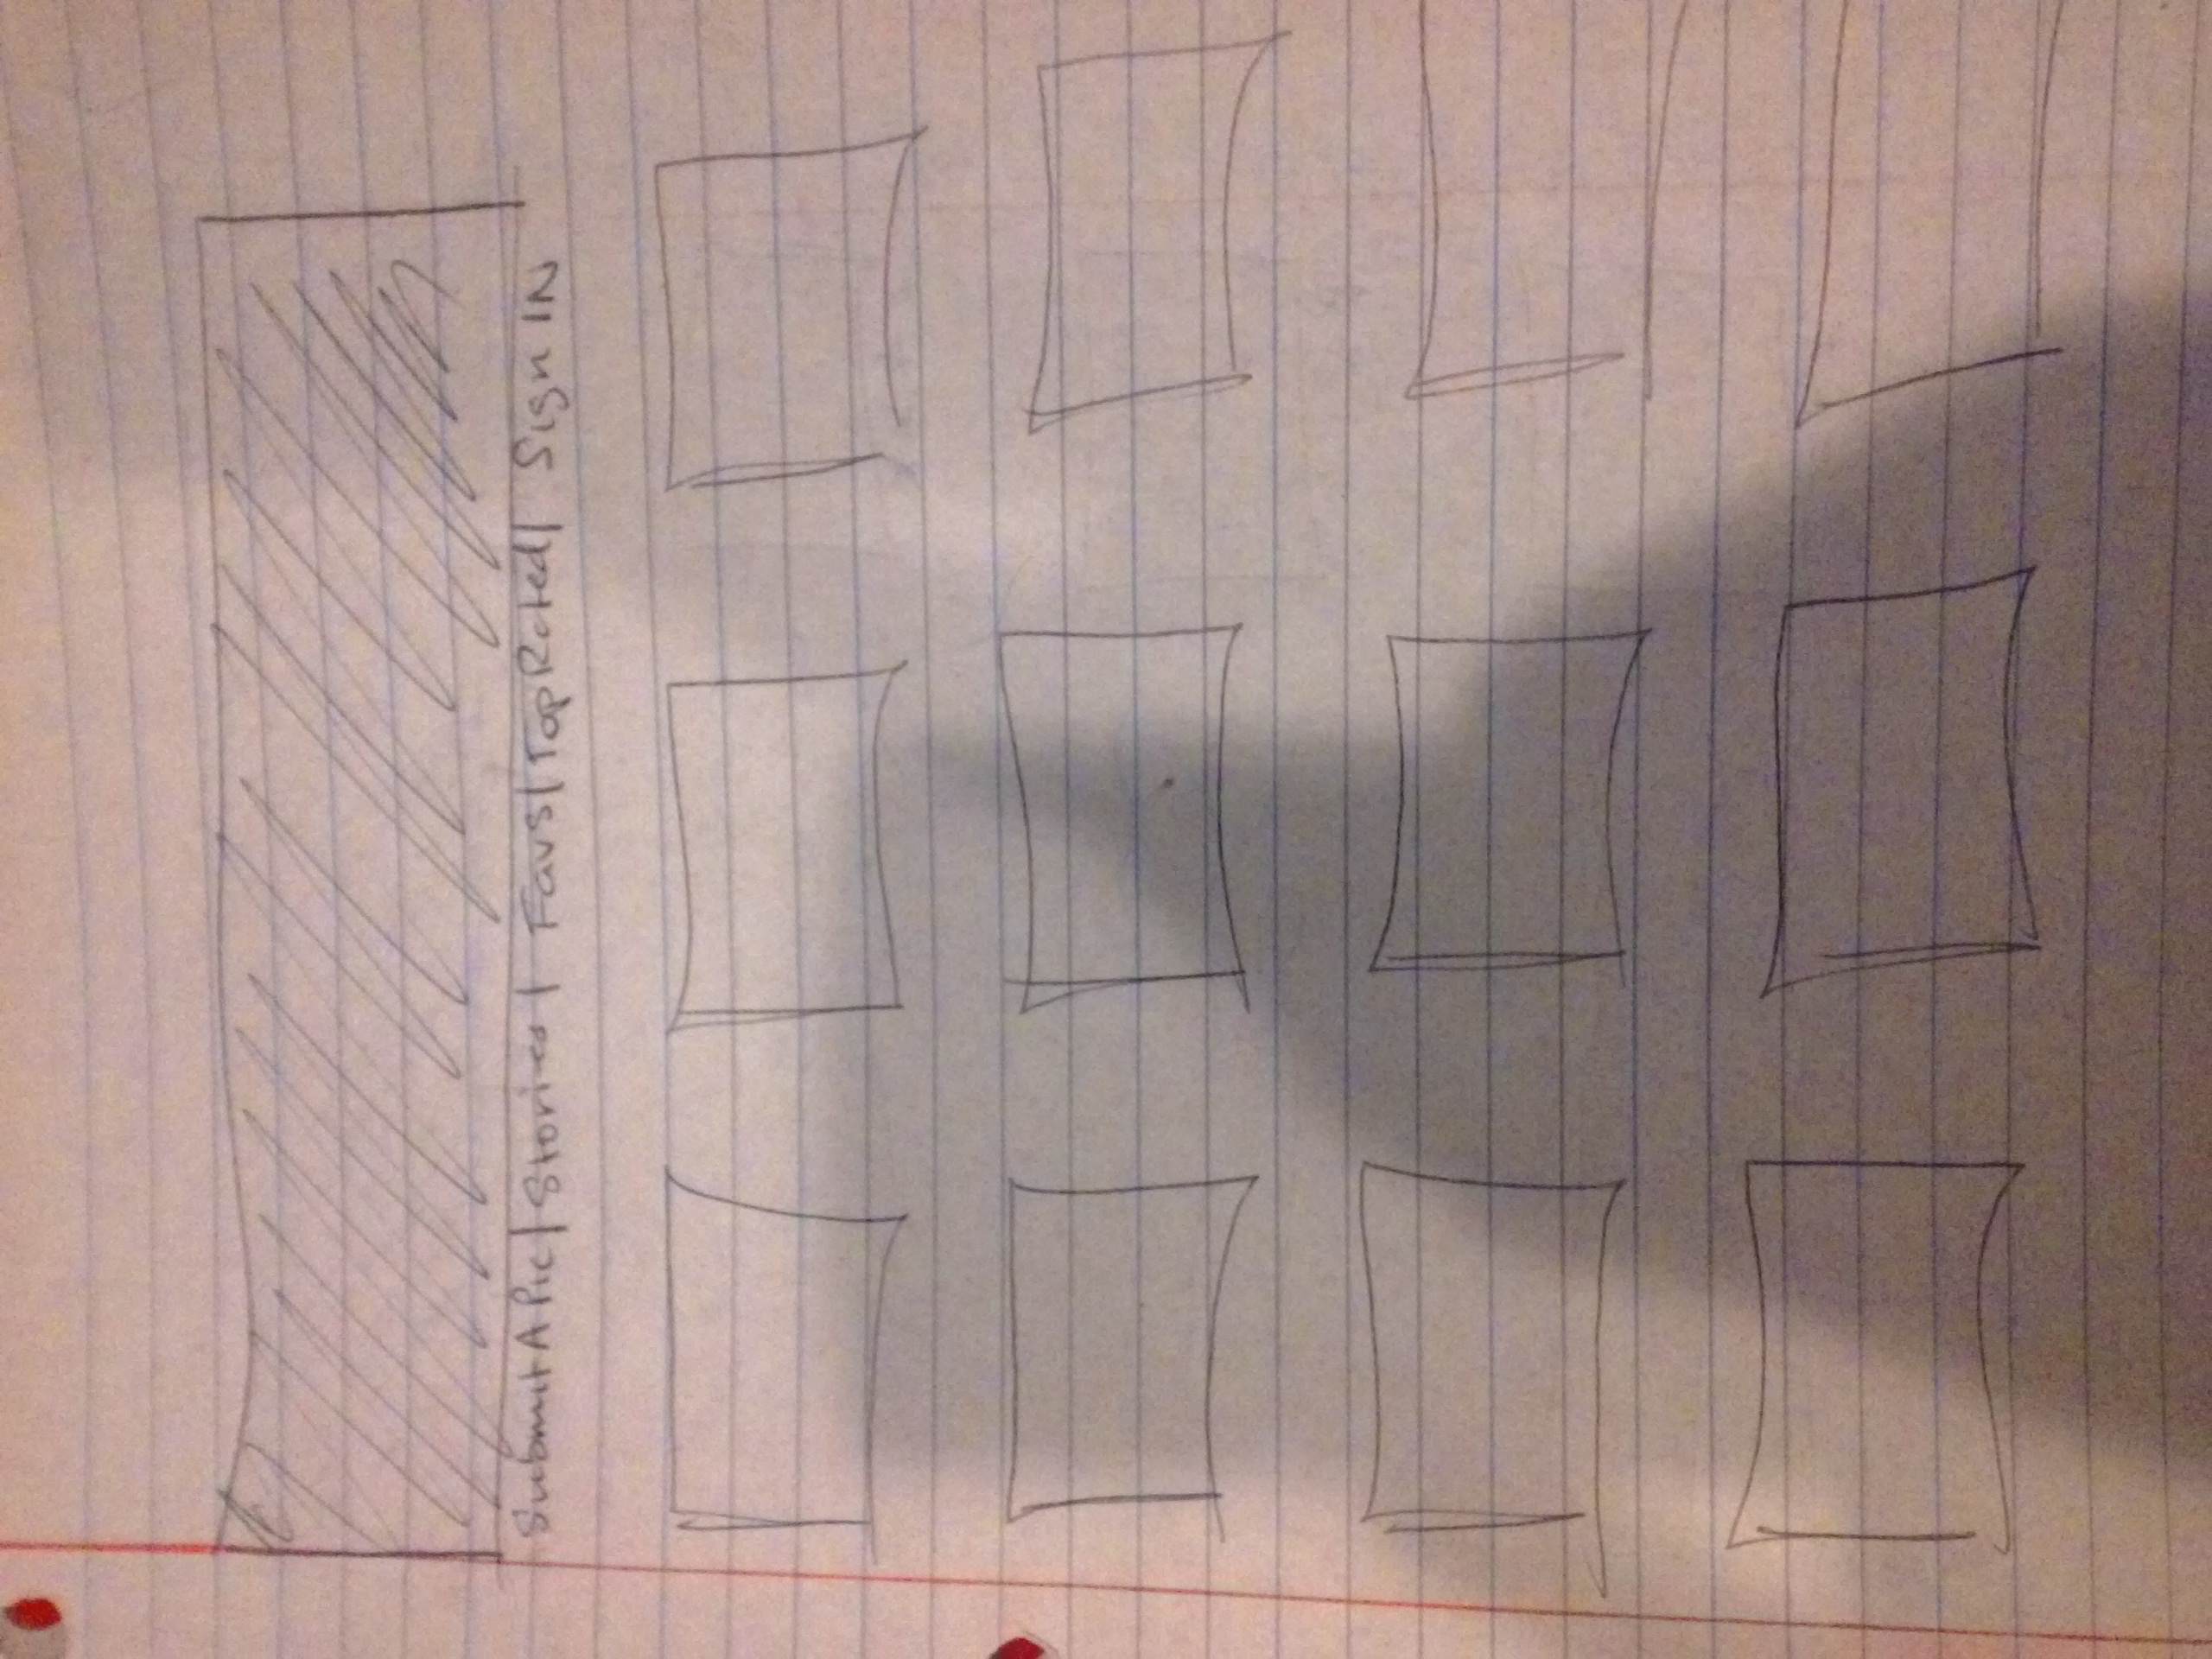 Submit A Pic | Stories | Favs | Top Rated | Sign IN